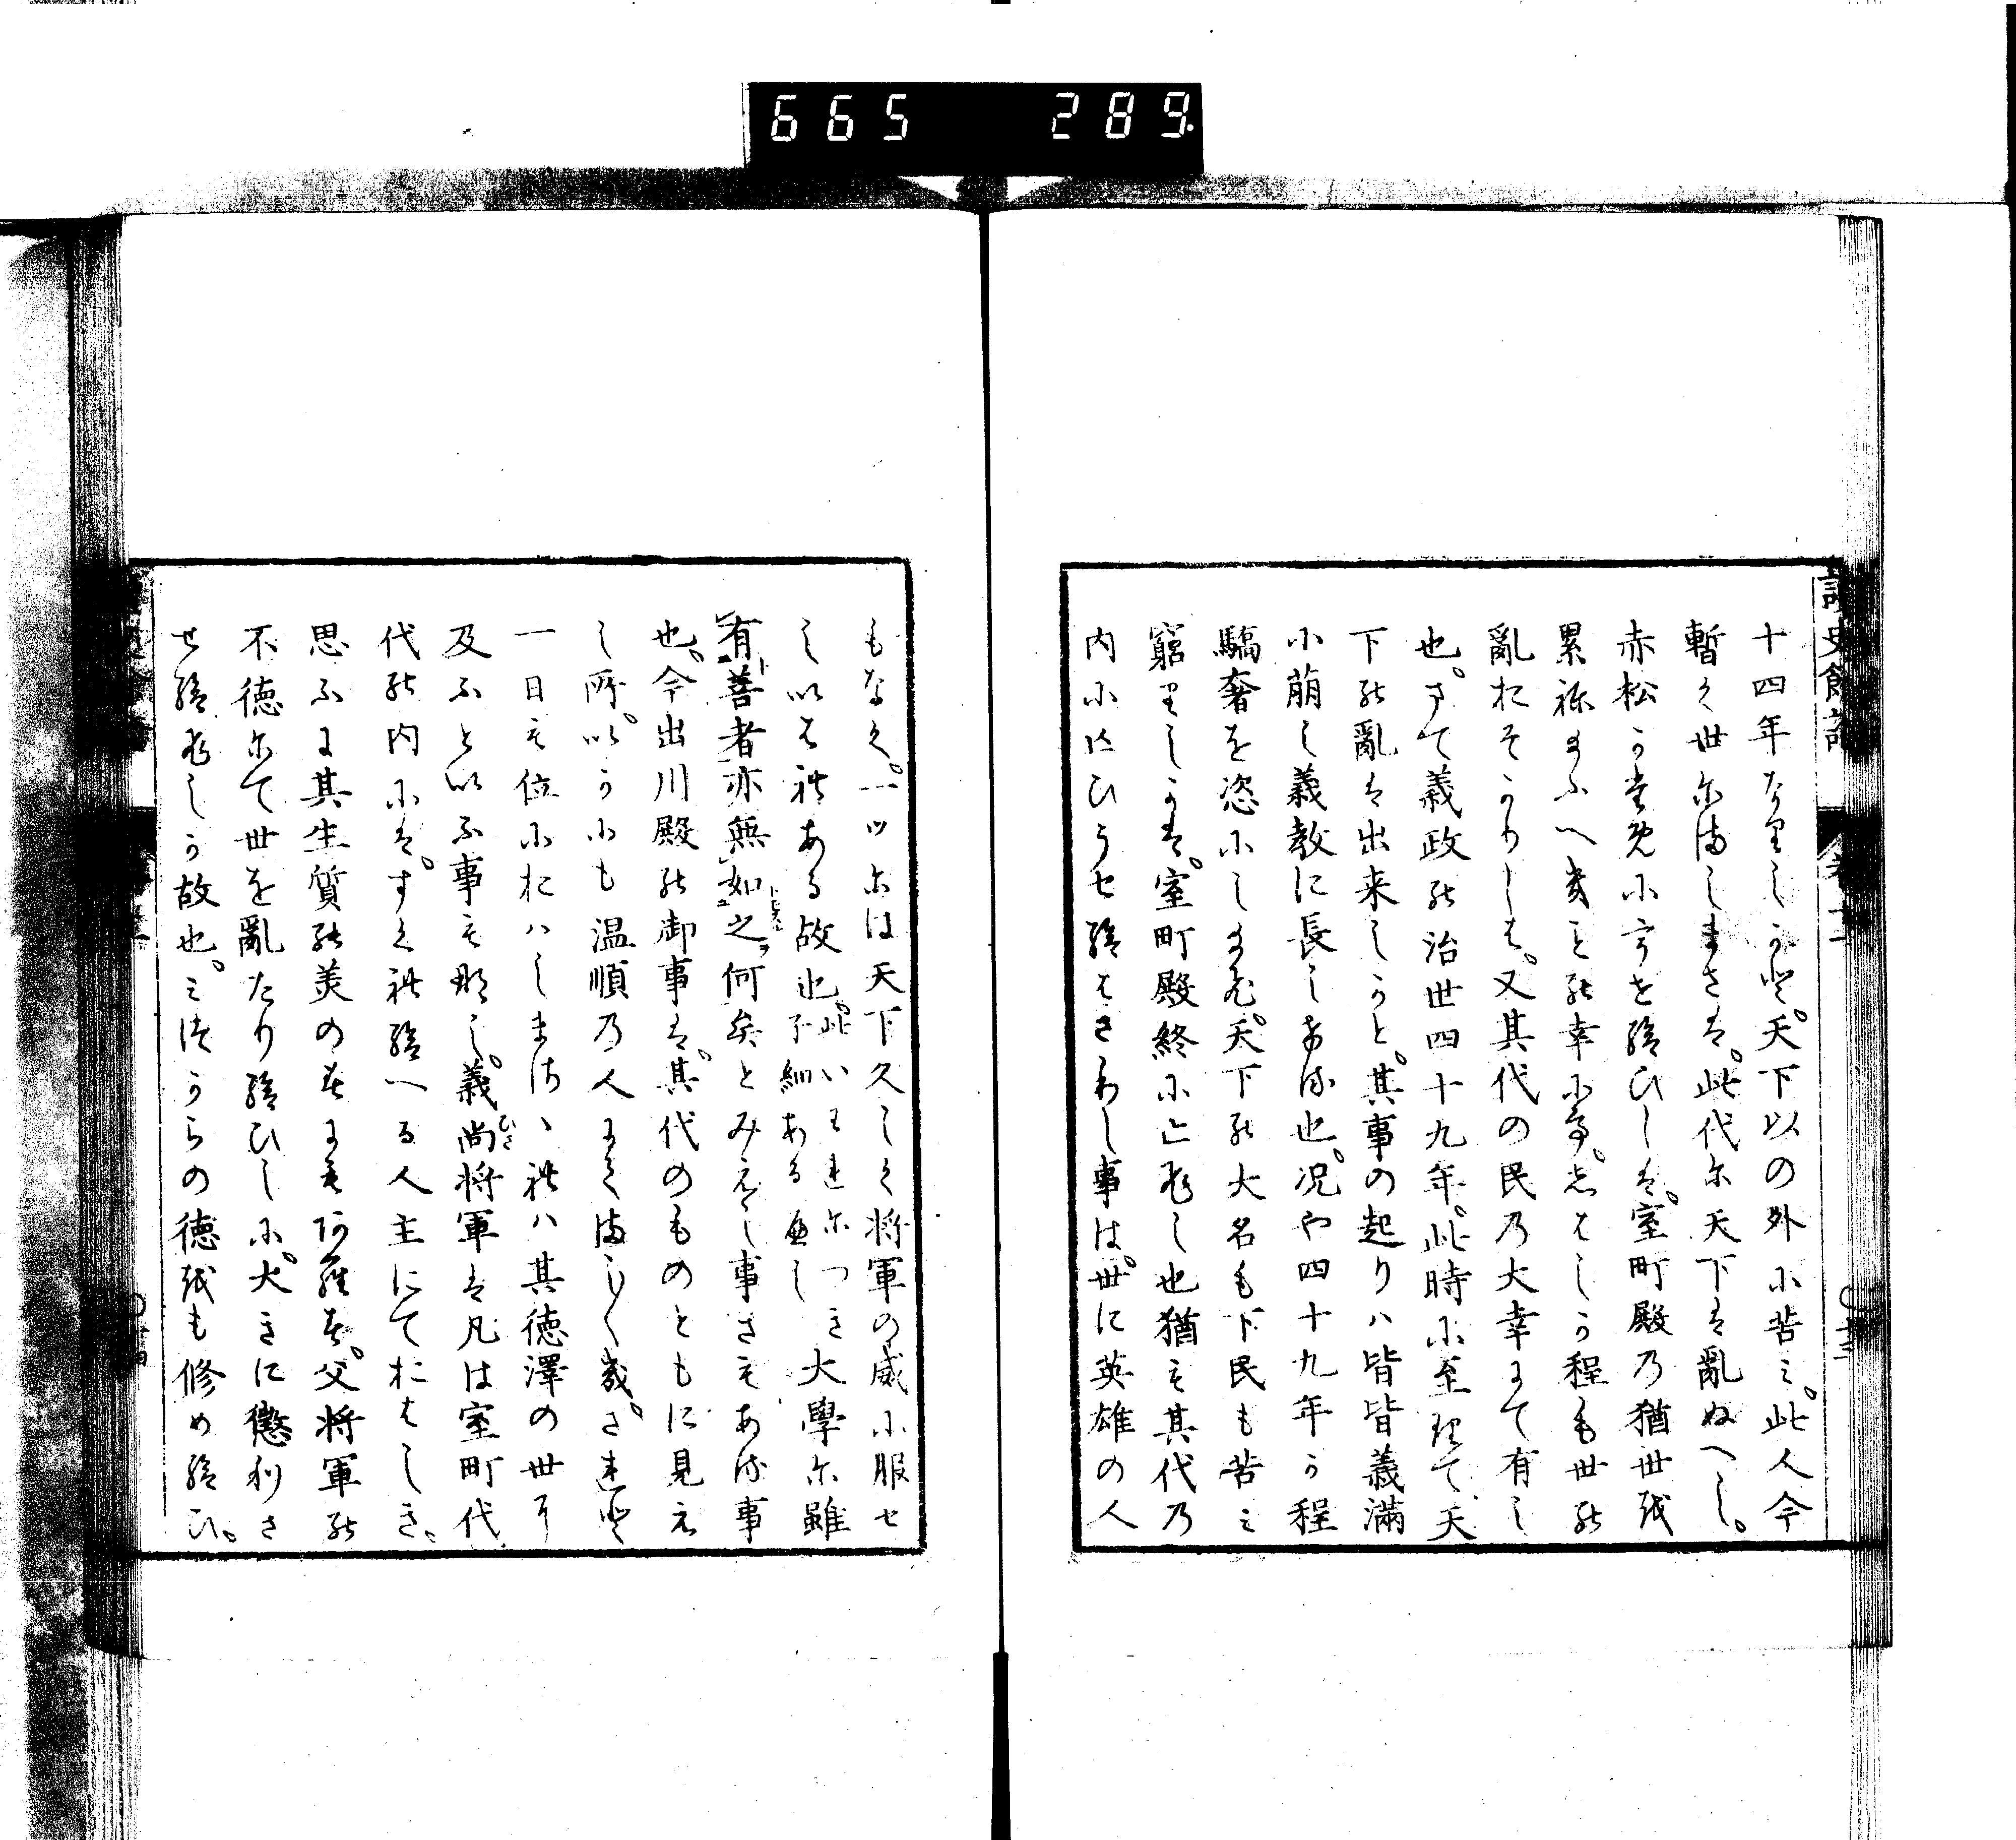 665 289.
十四年なりしか𪜈。天下以の外に苦ミ。此人今
暫く世にましまさは。此代に天下は亂ぬへし。
赤松か為に弑せられ給ひしは。室町殿の猶世を
累ね給ふへきことの幸に𫝶。しかし程も世の
亂れそかりしは。又其代の民の大幸にて有し
也。さて義政の治世四十九年。此時に至りて。天
下の亂は出来しかと。其事の起りハ皆皆義滿
に萠し義教に長しなる也。况や四十九年か程
驕奢を恣にし給ひ。天下の大名も下民も苦ミ
窮りしかは。室町殿終に亡ひし也猶も其代の
内にほひうせ給はさりし事は。世に英雄の人
もなく。一ツには天下久しく将軍の威に服せ
しいはれある故也。此いはれにつき子細あるへし 大學に雖
有善者亦無如之何矣とみえし事さもある事
也。今出川殿の御事は。其代のものともに見え
し所。いかにも温順の人にてましまし歟。され𪜈
一日も位におハしまさゝれハ其徳澤の世に
及ふといふ事もなし。義尚将軍は凡は室町代
代の内には。すくれ給へる人主にておはしき。
思ふに其生質の美のみにもあらす。父将軍の
不徳にて世を亂たり給ひしに。大きに懲りさ
せ給ひしか故也。ミつからの徳をも修め給ひ。